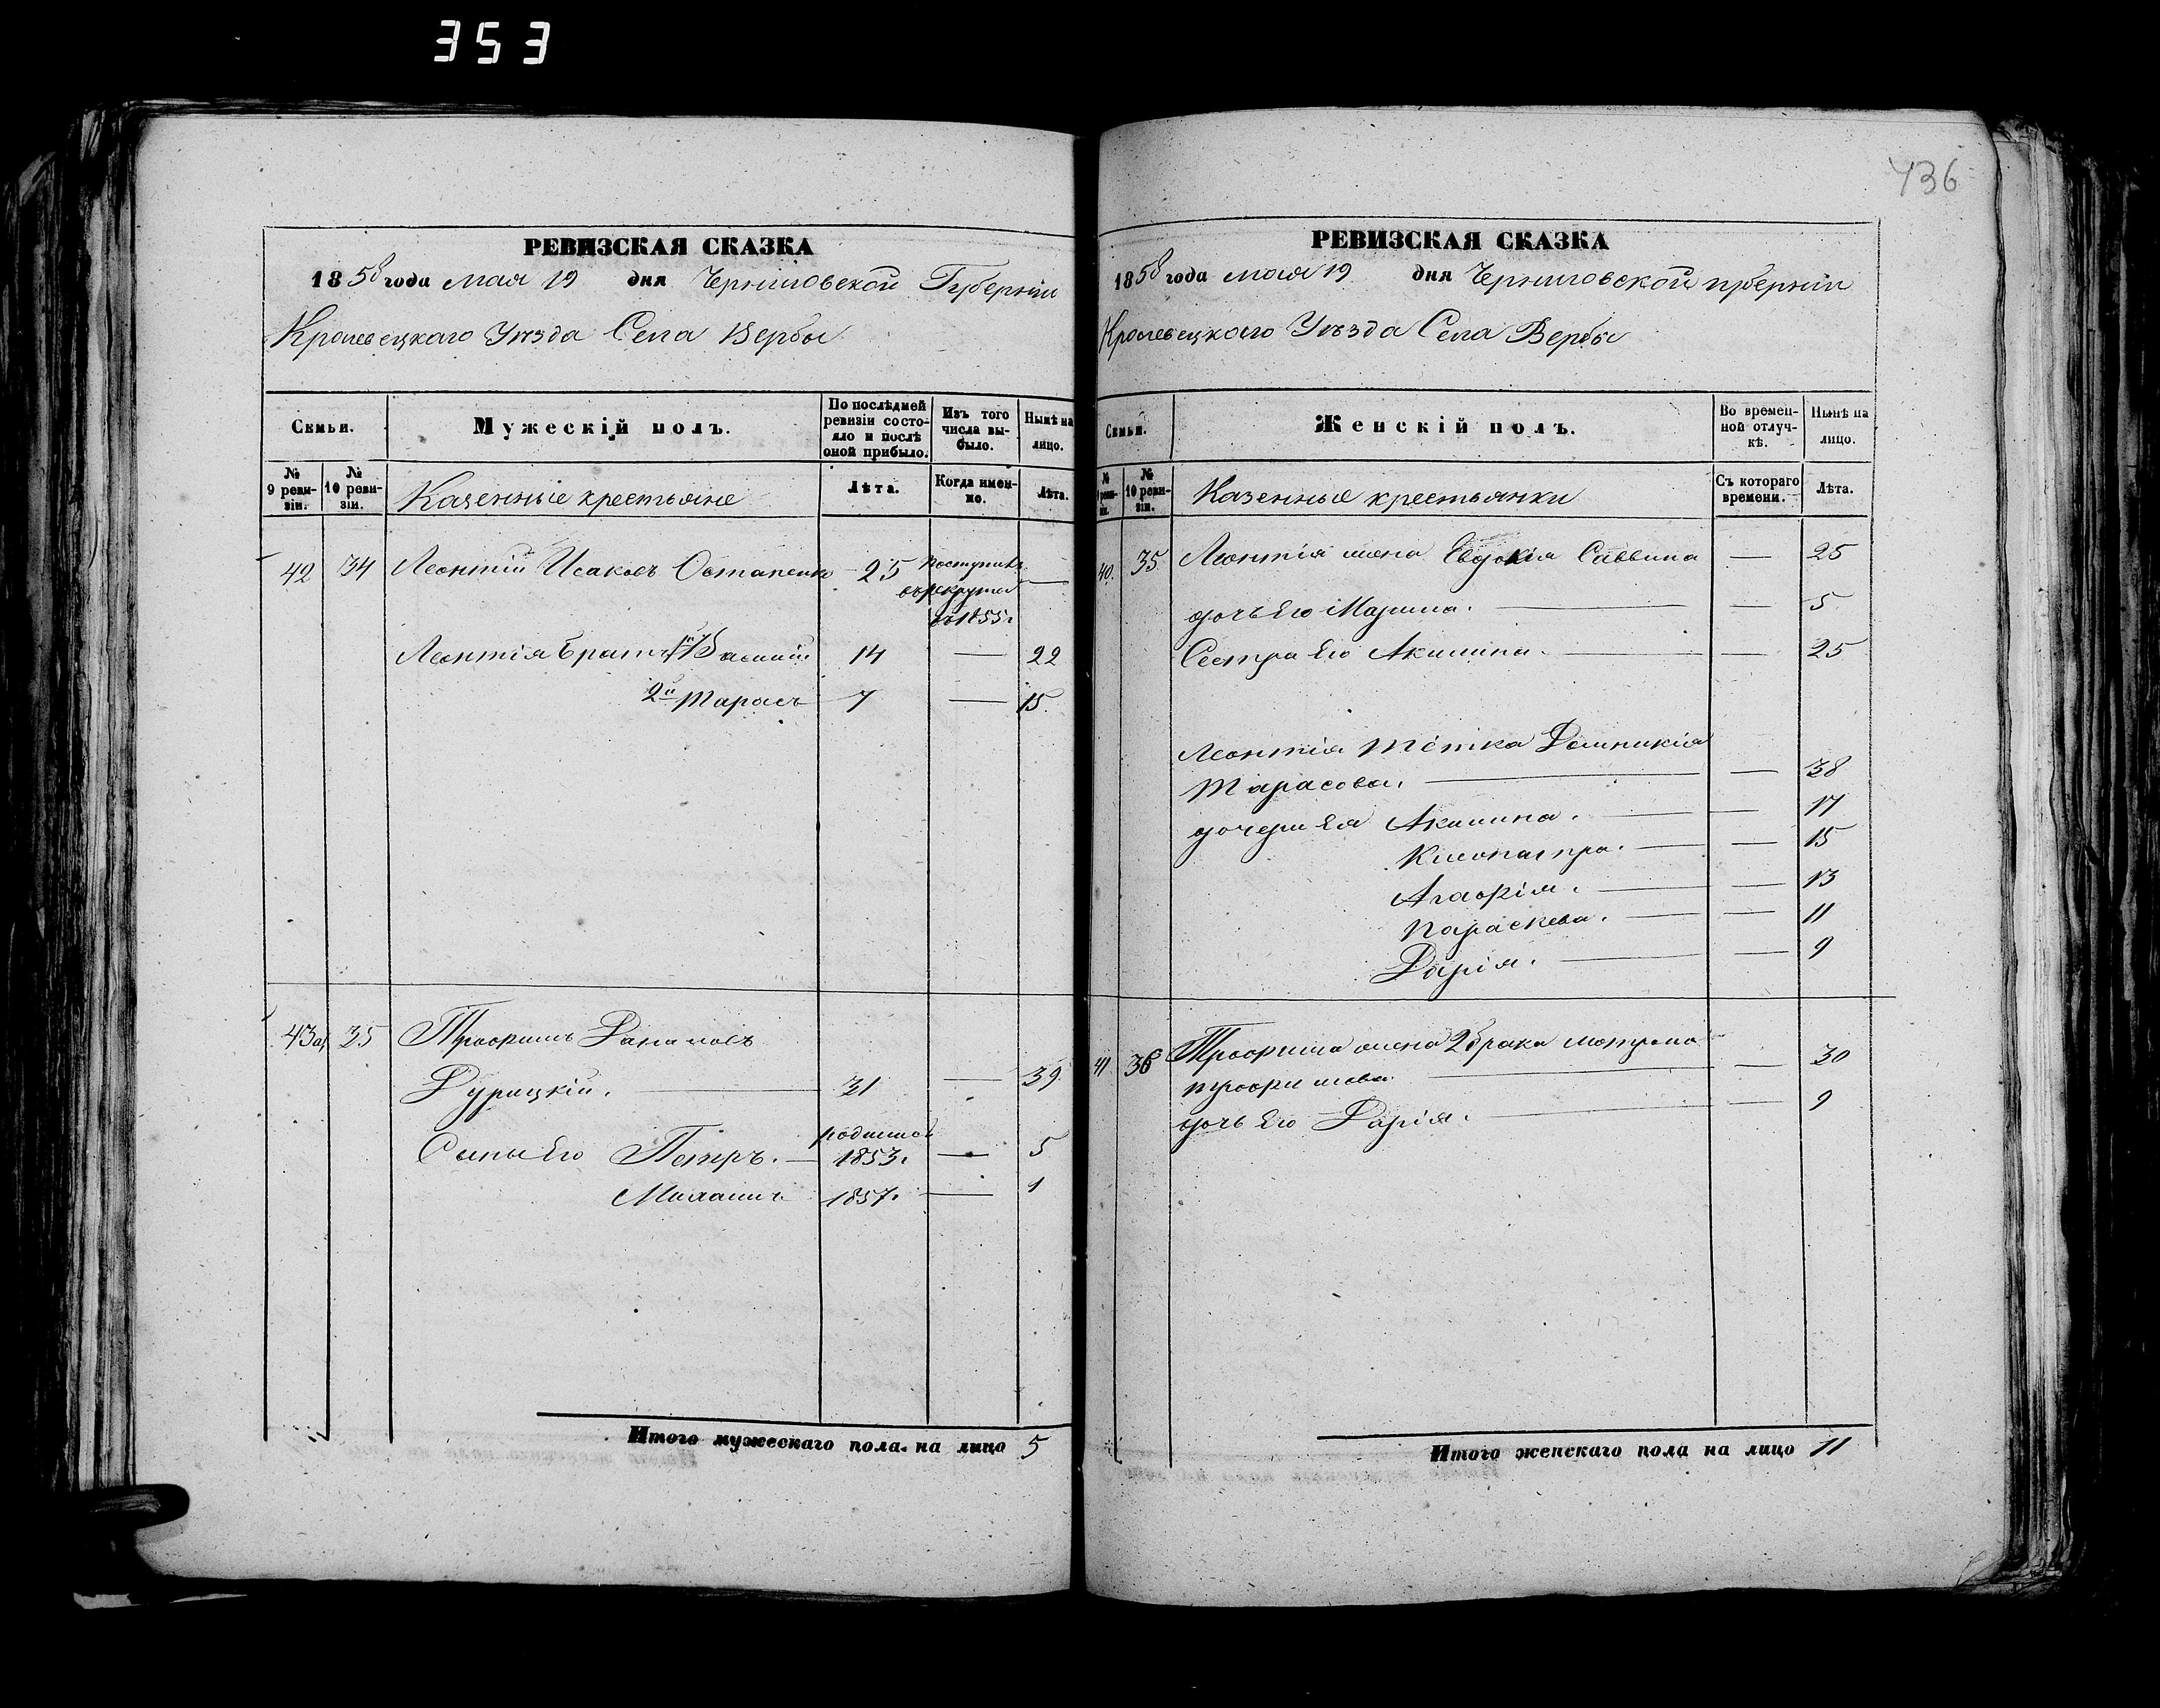 353
436
РЕВИЗСКАЯ СКАЗКА
1858 года мая 19 дня Черниговской Губерніи
Кролевецкаго Уѣзда Села Вербы
Семьи.
Мужескій полъ.
По послѣдней ревизіи состояло и послѣ оной прибыло.
Изъ того числа выбыло.
Нынѣ на лицо.
№ 9 ревизіи.
№ 10 ревизіи.
Казенные крестьяне
Лѣта.
Когда именно.
Лѣта.
42 34 Леонтій Исаковъ Остапенко 25 поступилъ —
въ рекруты
въ 1855 г
Леонтія братья 1й Василій 14 — 22
2й Тарасъ 7 — 15
43 а) 35 Трофимъ Даниловъ
Дурицкій. 31 — 39
Сыны Его Петръ. — родился 1853. — 5
1857. — 1
Итого мужескаго пола на лицо 5
РЕВИЗСКАЯ СКАЗКА
1858 года мая 19 дня Черниговской губерніи
Кролевецкаго Уѣзда Села Вербы
Семьи.
Женскій полъ.
Во временной отлучкѣ.
Нынѣ на лицо.
№ 10 ревизіи.
Казенные крестьянки
Съ котораго времени.
Лѣта.
40. 35 Леонтія жена Евдокія Саввина — 25
дочь Его Марина. — — 5
Сестра Его Акилина. — — 25
Леонтія тётка Домникія
Тарасова. — — 38
дочери Ея Акилина. — — 17
Клеопатра. — — 15
Агафія. — — 13
Параскева. — — 11
Дарія. — — 9
41 36 Трофима жена 2 брака Мотрона
Трофимова — — 30
дочь Его Дарія. — — 9
Итого женскаго пола на лицо 11